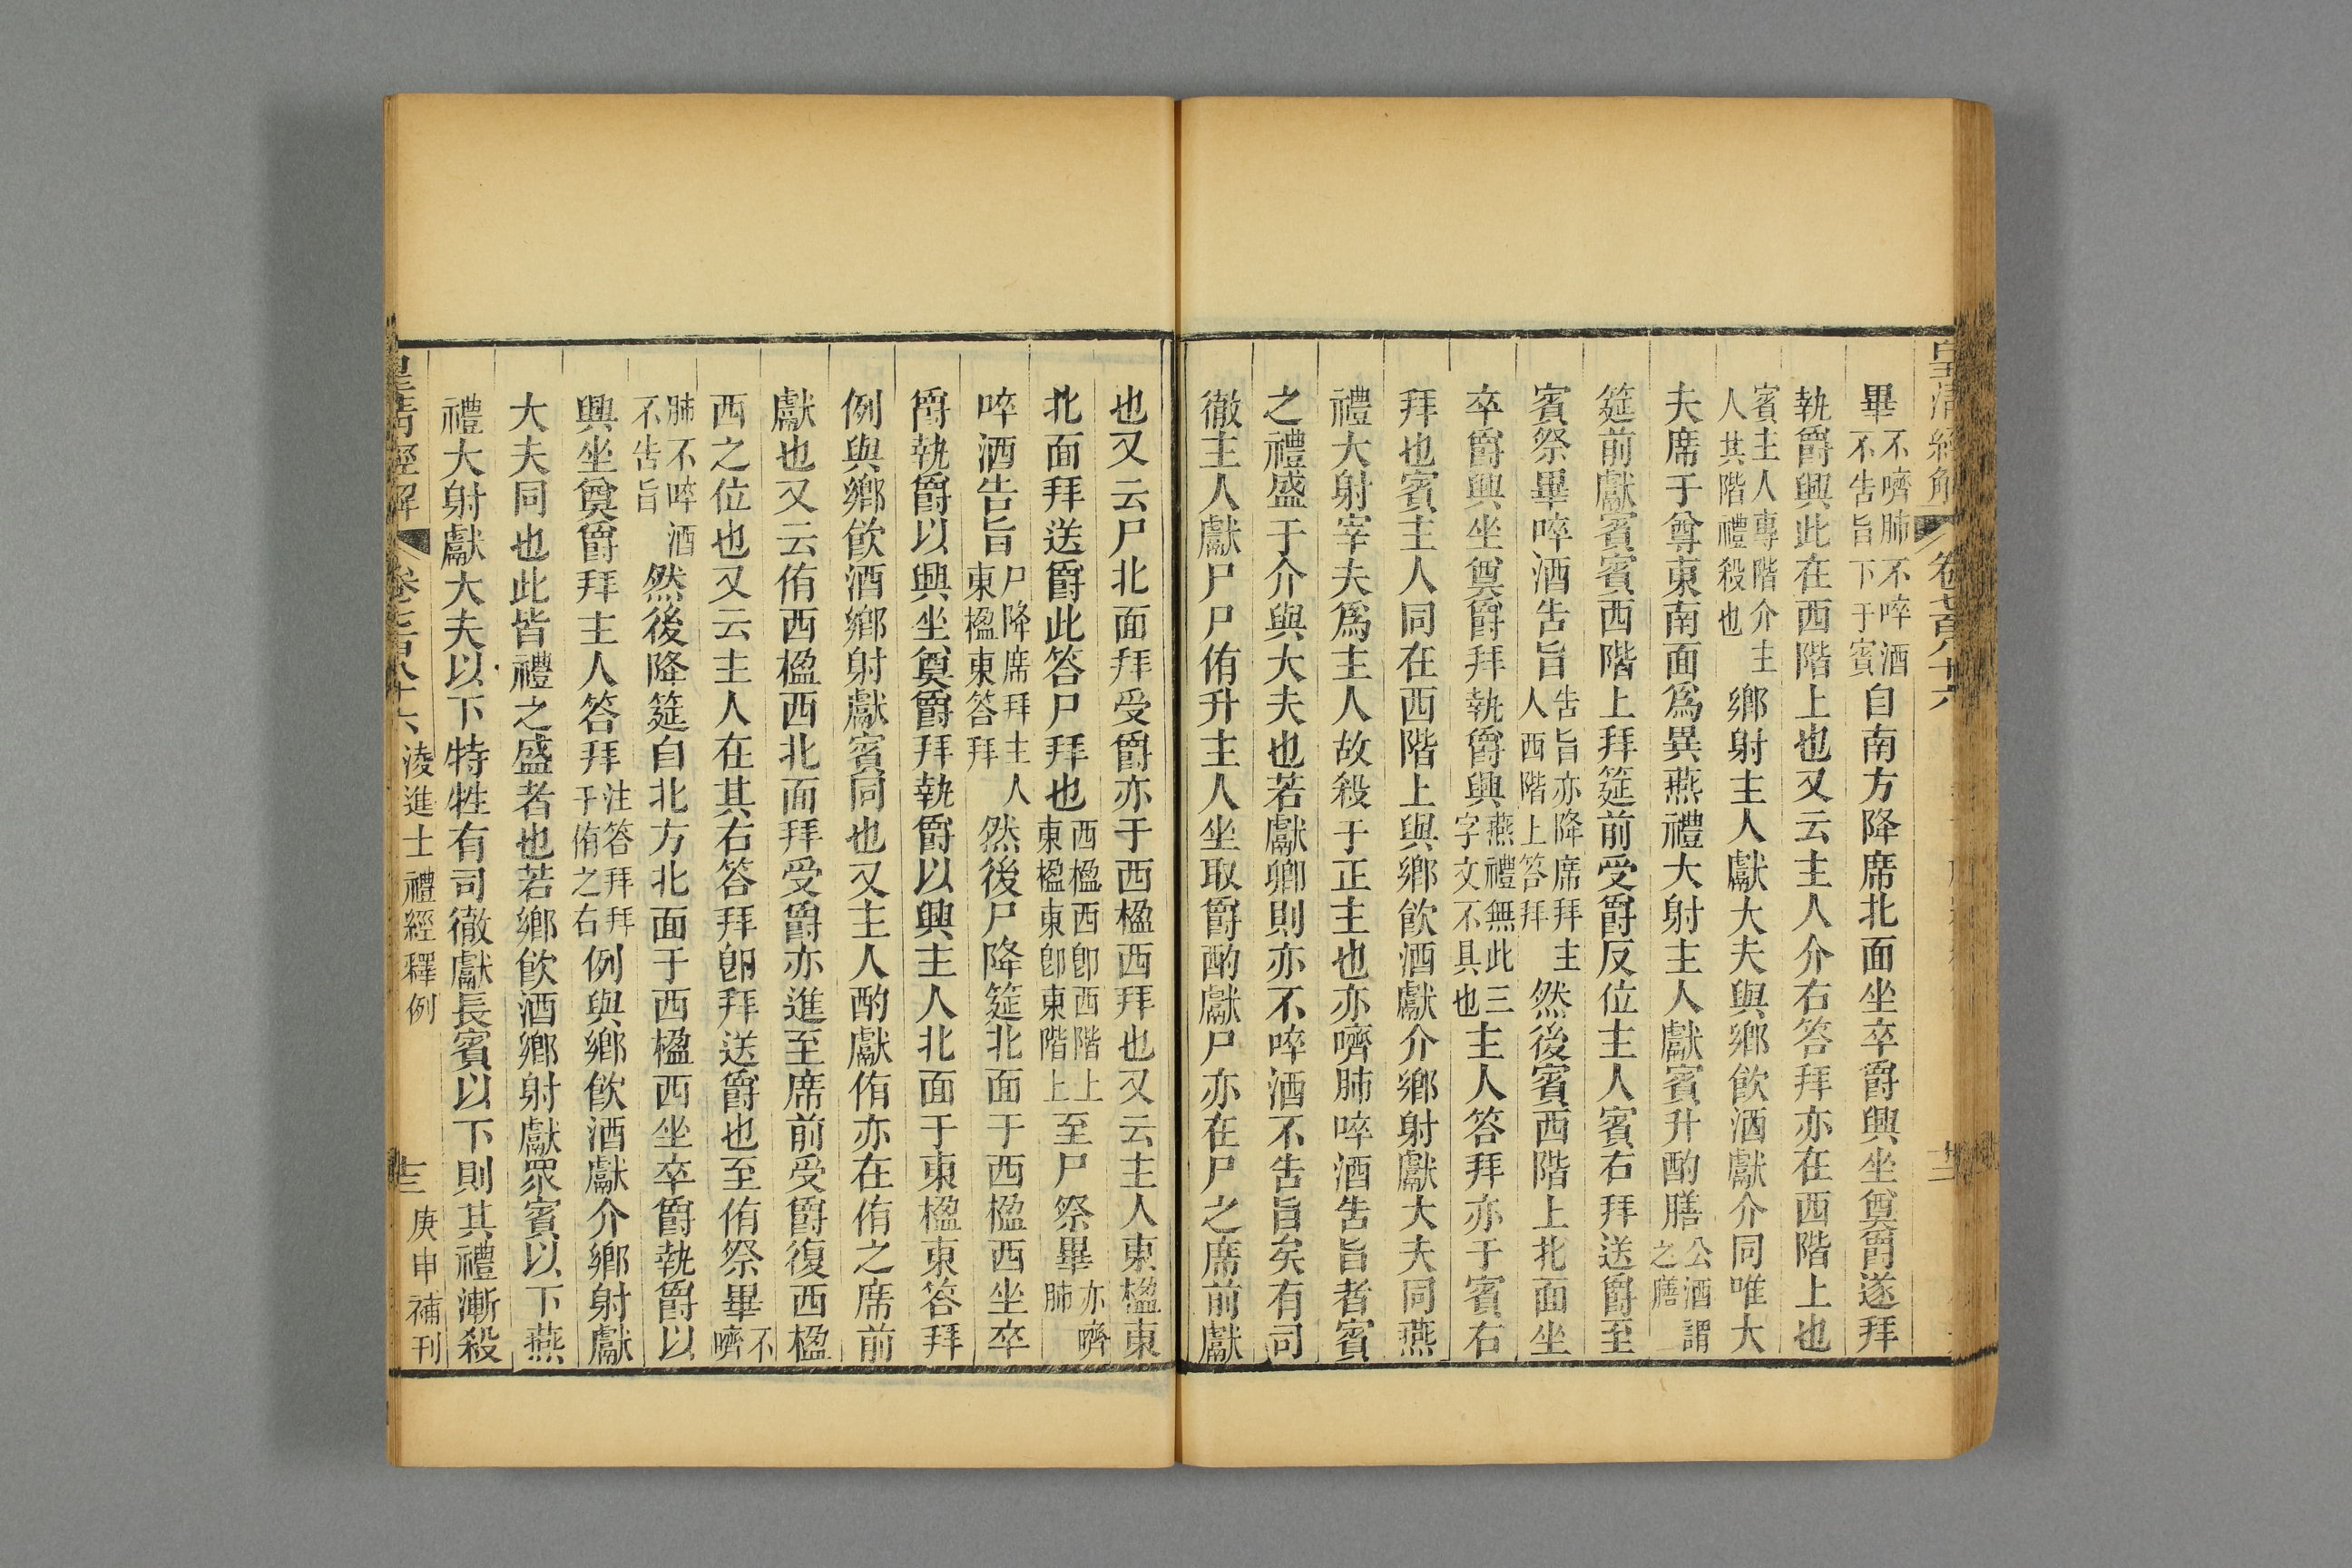 畢不嚌肺不啐酒不告旨下于賓自南方降席北面坐卒爵興坐奠爵遂拜
執爵興此在西階上也又云主人介右答拜亦在西階上也
賓主人專階介主人其階禮殺也鄉射主人獻大夫與鄉飮酒獻介同唯大
夫席于尊東南面爲異燕禮大射主人獻賓升酌膳公酒謂之膳
筵前獻賓賓西階上拜筵前受爵反位主人賓右拜送爵至
賓祭畢啐酒告旨告旨亦降席拜主人西階上答拜然後賓西階上北面坐
卒爵興坐奠爵拜執爵興燕禮無此三字文不具也主人答拜亦于賓右
拜也賓主人同在西階上與鄉飮酒獻介鄉射獻大夫同燕
禮大射宰夫爲主人故殺于正主也亦嚌肺啐酒告旨者賓
之禮盛于介與大夫也若獻卿則亦不啐酒不告旨矣有司
徹主人獻尸尸侑升主人坐取爵酌獻尸亦在尸之席前獻
也又云尸北面拜受爵亦于西楹西拜也又云主人東楹東
北面拜送爵此答尸拜也西楹西卽西階上東楹東卽東階上至尸祭畢亦嚌肺
啐酒告旨尸降席拜主人東楹東答拜然後尸降筵北面于西楹西坐卒
爵執爵以興坐奠爵拜執爵以興主人北面于東楹東答拜
例與鄉飮酒鄉射獻賓同也又主人酌獻侑亦在侑之席前
獻也又云侑西楹西北面拜受爵亦進至席前受爵復西楹
西之位也又云主人在其右答拜卽拜送爵也至侑祭畢不嚌
肺不啐酒不告旨然後降筵自北方北面于西楹西坐卒爵執爵以
興坐奠爵拜主人答拜注答拜拜于侑之右例與鄉飮酒獻介鄉射獻
大夫同也此皆禮之盛者也若鄉飮酒鄉射獻眾賓以下燕
禮大射獻大夫以下特牲有司徹獻長賓以下則其禮漸殺
皇清經解 卷七百八十六 淩進士禮經釋例 十三 庚申補刊